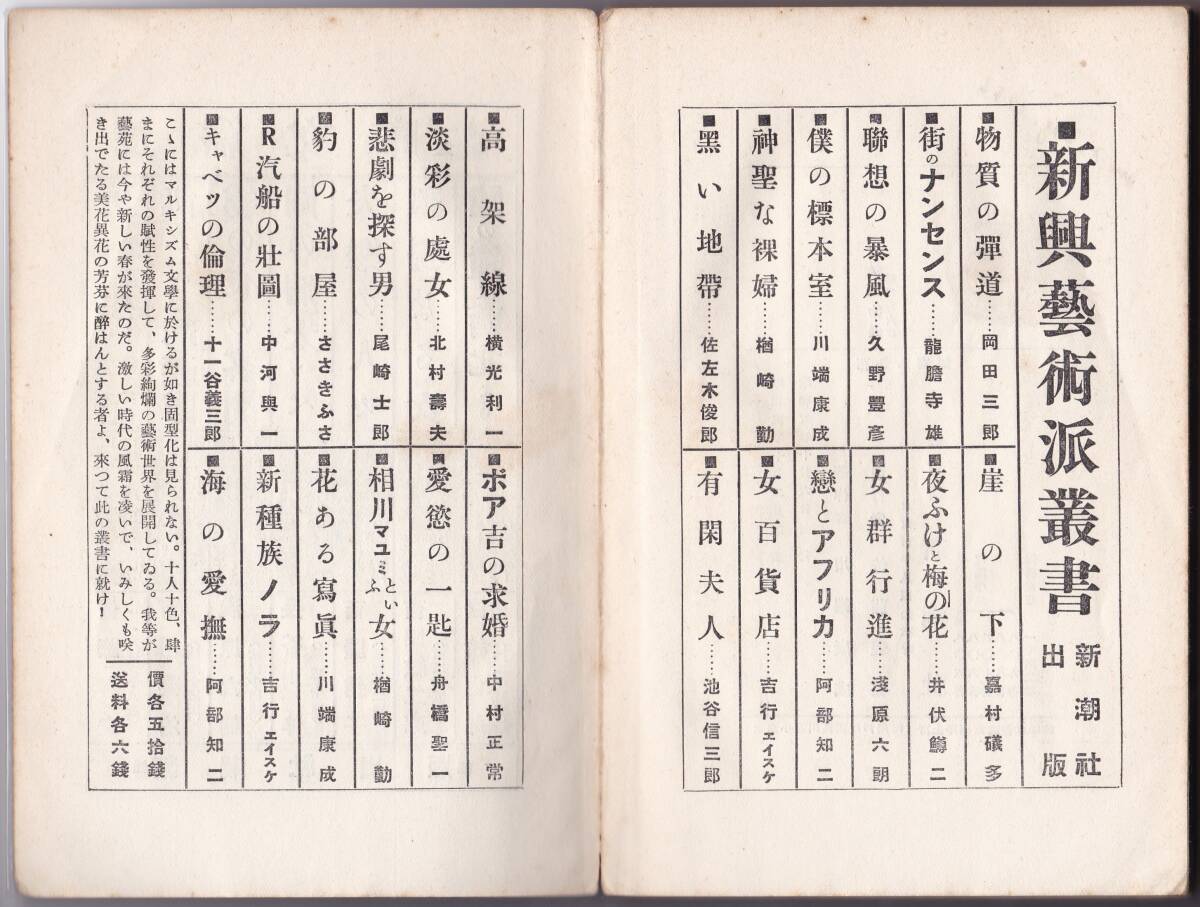 ■新興藝術派叢書
新潮社
出版
■物質の彈道……岡田三郎
■街のナンセンス……龍膽寺雄
■聯想の暴風……久野豐彥
■僕の標本室……川端康成
■神聖な裸婦……楢崎勤
■黑い地帶……佐左木俊郎
■崖の下……嘉村礒多
■夜ふけと梅の花……井伏鱒二
■女群行進……淺原六朗
■戀とアフリカ……阿部知二
■女百貨店……吉行エイスケ
■有閑夫人……池谷信三郎
■高架線……橫光利一
■淡彩の處女……北村壽夫
■悲劇を探す男……尾崎士郎
■豹の部屋……ささきふさ
■R汽船の壯圖……中河與一
■キャベツの倫理……十一谷義三郎
■ボア吉の求婚……中村正常
■愛慾の一匙……舟橋聖一
■相川マユミといふ女……楢崎勤
■花ある寫眞……川端康成
■新種族ノラ……吉行エイスケ
■海の愛撫……阿部知二
こゝにはマルキシズム文學に於けるが如き固型化は見られない。十人十色、肆
まにそれぞれの賦性を發揮して、多彩絢爛の藝術世界を展開してゐる。我等が
藝苑には今や新しい春が來たのだ。激しい時代の風霜を凌いで、いみしくも咲
き出でたる美花異花の芳芬に醉はんとする者よ、來つて此の叢書に就け！
價各五拾錢
送料各六錢